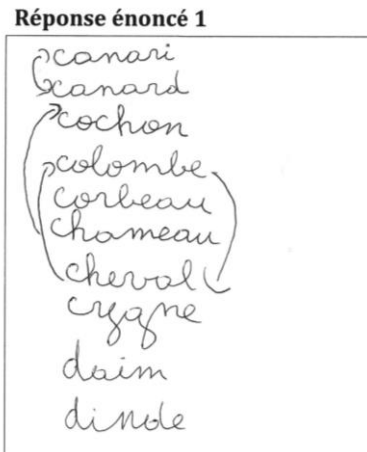 Réponse énoncé 1
canari
canard
cochon
colombe
corbeau
chameau
cheval
cygne
daim
dinde